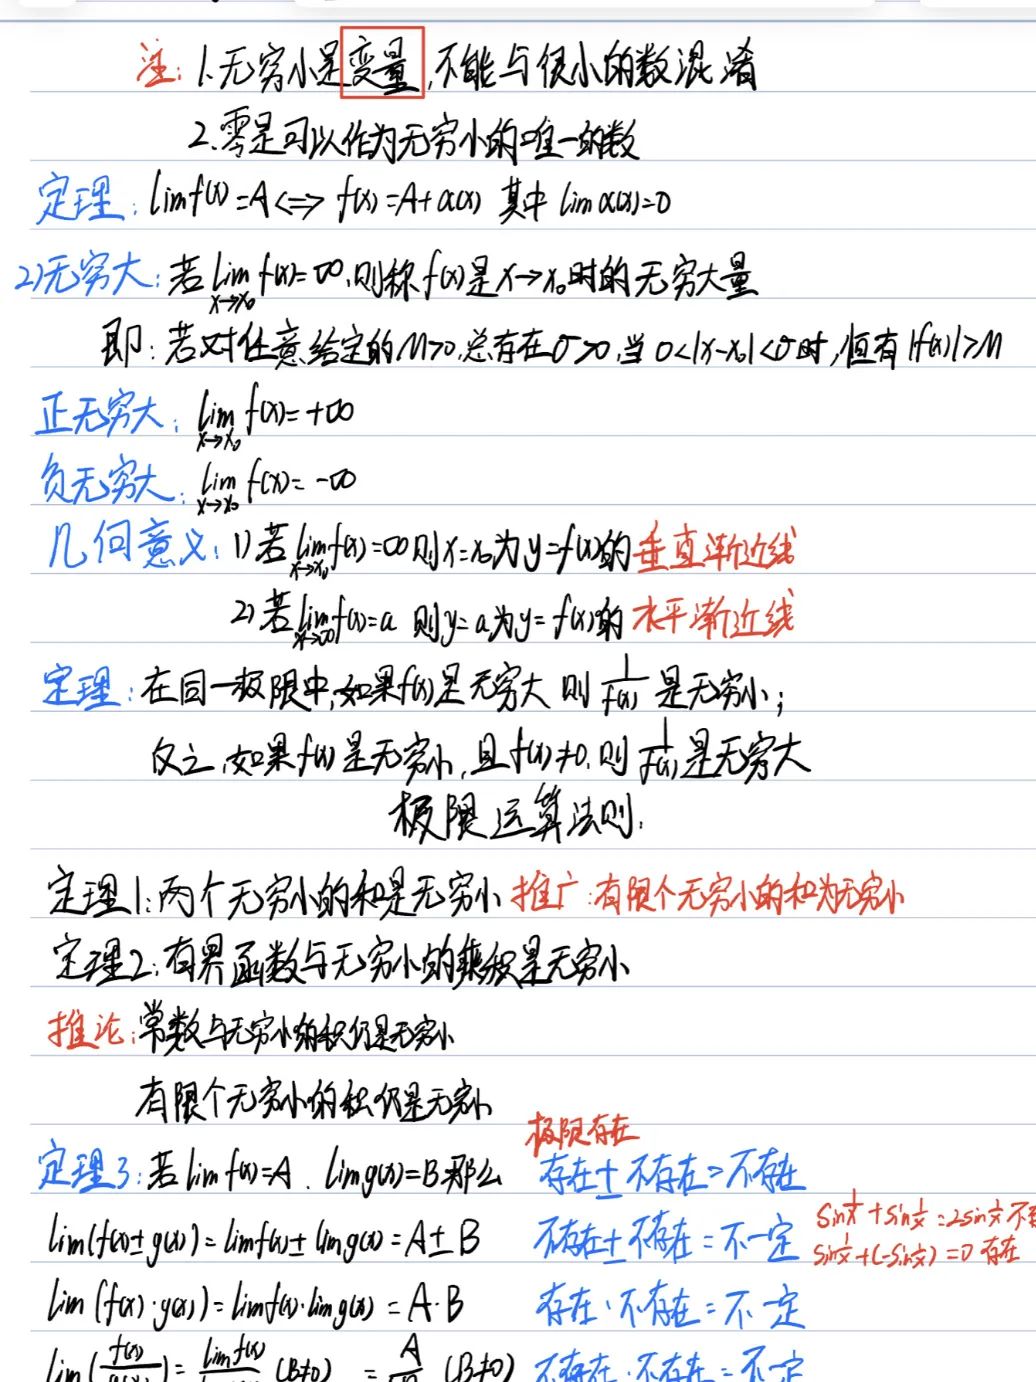 注: 1.无穷小是变量,不能与很小的数混淆
2.零是可以作为无穷小的唯一的数
定理: lim f(x)=A <=> f(x)=A+α(x) 其中 lim α(x)=0
2)无穷大: 若 lim x→x₀ f(x)=∞,则称f(x)是x→x₀时的无穷大量
即: 若对任意给定的M>0,总存在δ>0,当0<|x-x₀|<δ时,恒有|f(x)|>M
正无穷大: lim x→x₀ f(x)=+∞
负无穷大: lim x→x₀ f(x)=-∞
几何意义: 1)若 lim x→x₀ f(x)=∞则x=x₀为y=f(x)的垂直渐近线
2)若 lim x→∞ f(x)=a 则y=a为y=f(x)的水平渐近线
定理: 在同一极限中,如果f(x)是无穷大 则 1/f(x) 是无穷小;
反之,如果f(x)是无穷小,且f(x)≠0,则 1/f(x) 是无穷大
极限运算法则:
定理1:两个无穷小的和是无穷小 推广:有限个无穷小的和为无穷小
定理2:有界函数与无穷小的乘积是无穷小
推论:常数与无穷小的积仍是无穷小
有限个无穷小的积仍是无穷小
极限存在
定理3:若 lim f(x)=A. lim g(x)=B 那么 存在±不存在=不存在
lim(f(x)±g(x))=lim f(x)±lim g(x)=A±B 不存在±不存在=不一定 sin 1/x + sin 1/x = 2sin 1/x 不
sin 1/x +(-sin 1/x)=0 存在
lim (f(x)·g(x))=lim f(x)·lim g(x)=A·B 存在·不存在=不一定
lim( f(x) )= lim f(x) (B≠0) = A (B≠0) 不存在·不存在=不一定